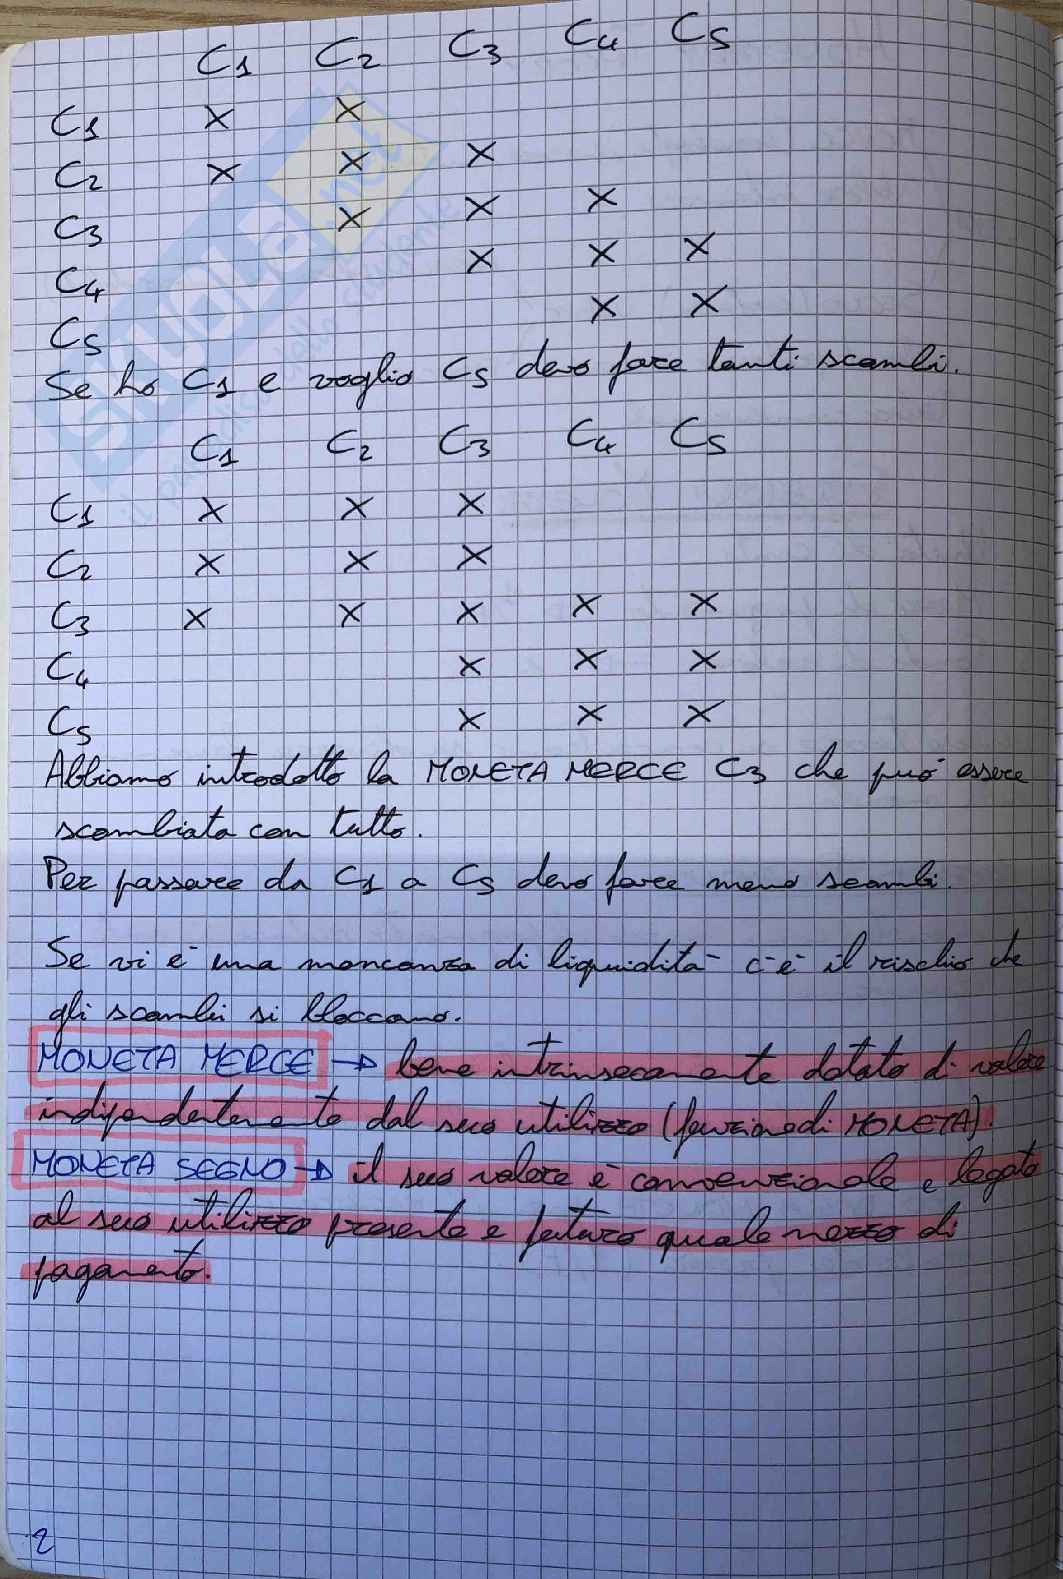 C1 C2 C3 C4 C5
C1 × ×
C2 × × ×
C3 × × ×
C4 × × ×
C5 × ×
Se ho C1 e voglio C5 devo fare tanti scambi.
C1 C2 C3 C4 C5
C1 × × ×
C2 × × ×
C3 × × × × ×
C4 × × ×
C5 × × ×
Abbiamo introdotto la MONETA MERCE C3 che può essere
scambiata con tutto.
Per passare da C1 a C5 devo fare meno scambi.
Se vi è una mancanza di liquidità c'è il rischio che
gli scambi si bloccano.
MONETA MERCE → bene intrinsecamente dotato di valore
indipendentemente dal suo utilizzo (funzione di MONETA).
MONETA SEGNO → il suo valore è convenzionale e legato
al suo utilizzo presente e futuro quale mezzo di
pagamento.
2
skuola.net